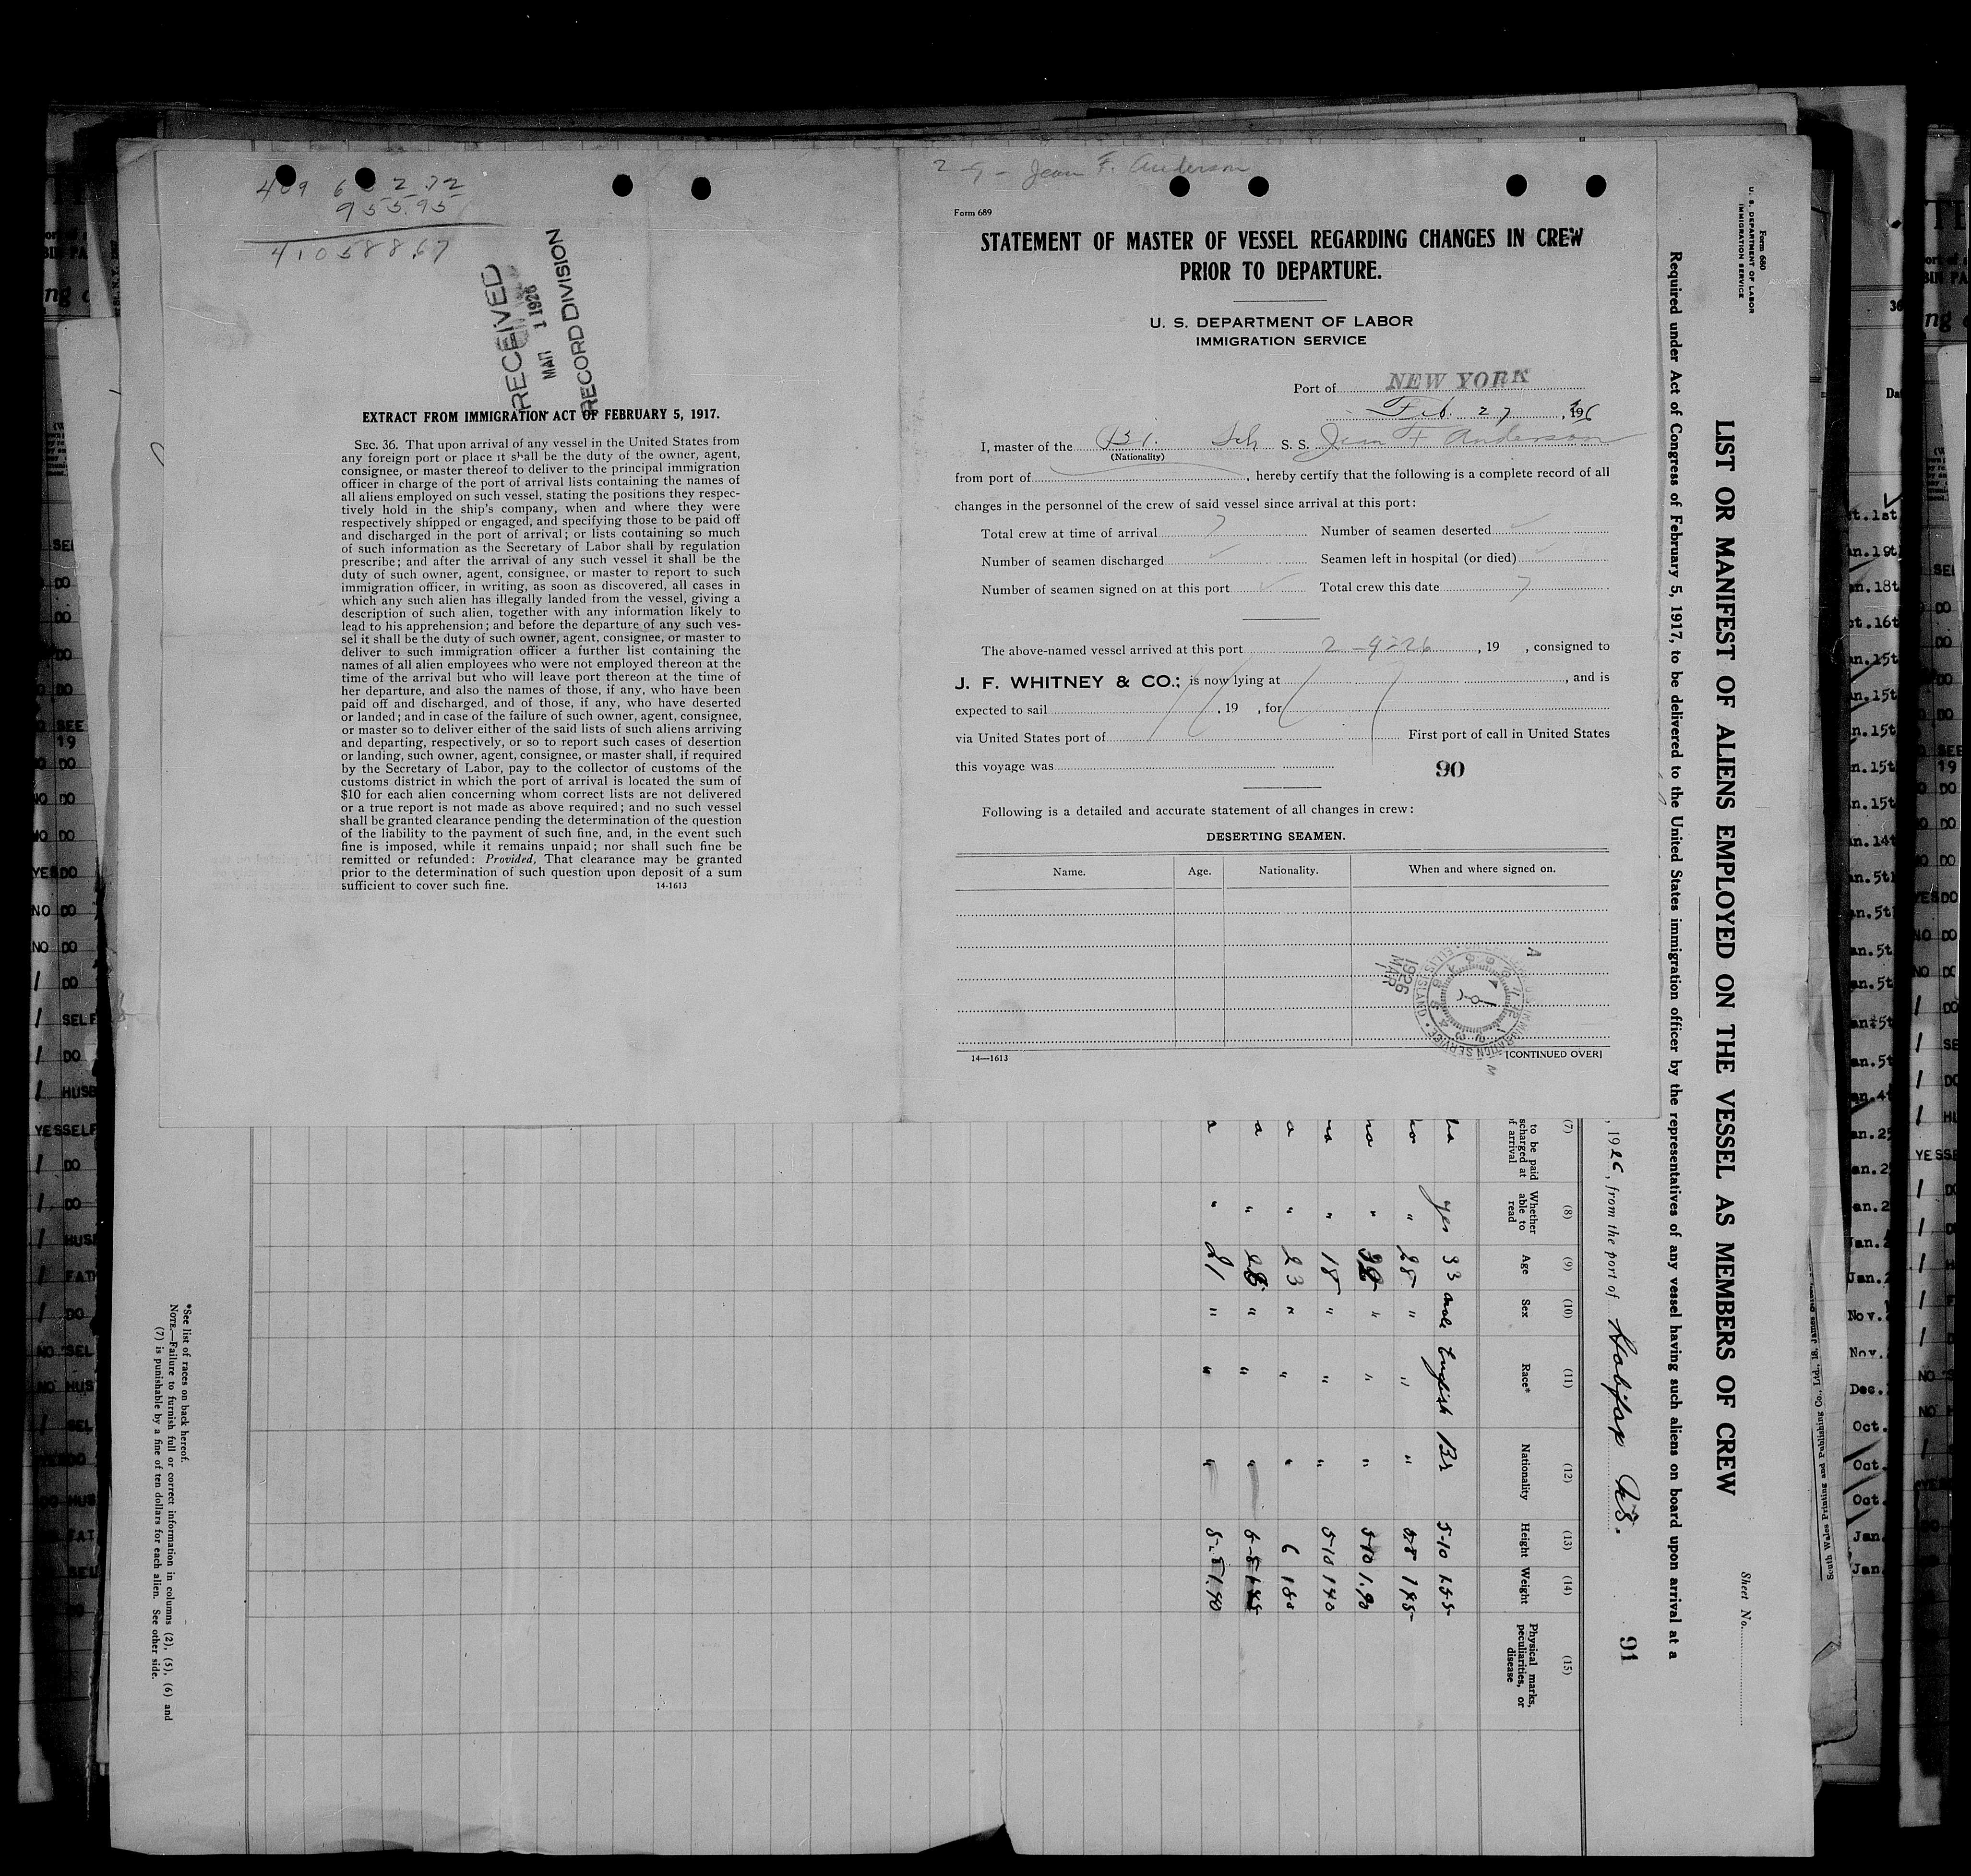 409 6 2.72
955.95
41058867
RECEIVED
MAR 1 1926
RECORD DIVISION
EXTRACT FROM IMMIGRATION ACT OF FEBRUARY 5, 1917.
SEC. 36. That upon arrival of any vessel in the United States from
any foreign port or place it shall be the duty of the owner, agent,
consignee, or master thereof to deliver to the principal immigration
officer in charge of the port of arrival lists containing the names of
all aliens employed on such vessel, stating the positions they respec-
tively hold in the ship's company, when and where they were
respectively shipped or engaged, and specifying those to be paid off
and discharged in the port of arrival; or lists containing so much
of such information as the Secretary of Labor shall by regulation
prescribe; and after the arrival of any such vessel it shall be the
duty of such owner, agent, consignee, or master to report to such
immigration officer, in writing, as soon as discovered, all cases in
which any such alien has illegally landed from the vessel, giving a
description of such alien, together with any information likely to
lead to his apprehension; and before the departure of any such ves-
sel it shall be the duty of such owner, agent, consignee, or master to
deliver to such immigration officer a further list containing the
names of all alien employees who were not employed thereon at the
time of the arrival but who will leave port thereon at the time of
her departure, and also the names of those, if any, who have been
paid off and discharged, and of those, if any, who have deserted
or landed; and in case of the failure of such owner, agent, consignee,
or master so to deliver either of the said lists of such aliens arriving
and departing, respectively, or so to report such cases of desertion
or landing, such owner, agent, consignee, or master shall, if required
by the Secretary of Labor, pay to the collector of customs of the
customs district in which the port of arrival is located the sum of
$10 for each alien concerning whom correct lists are not delivered
or a true report is not made as above required; and no such vessel
shall be granted clearance pending the determination of the question
of the liability to the payment of such fine, and, in the event such
fine is imposed, while it remains unpaid; nor shall such fine be
remitted or refunded: Provided, That clearance may be granted
prior to the determination of such question upon deposit of a sum
sufficient to cover such fine. 14-1613
2-9- Jean F. Anderson
Form 689
STATEMENT OF MASTER OF VESSEL REGARDING CHANGES IN CREW
PRIOR TO DEPARTURE.
U. S. DEPARTMENT OF LABOR
IMMIGRATION SERVICE
Port of NEW YORK
Feb. 27, 1926
I, master of the Br. Sch S. S. Jean F Anderson
(Nationality)
from port of , hereby certify that the following is a complete record of all
changes in the personnel of the crew of said vessel since arrival at this port:
Total crew at time of arrival 7 Number of seamen deserted ✓
Number of seamen discharged ✓ Seamen left in hospital (or died) ✓
Number of seamen signed on at this port ✓ Total crew this date 7
The above-named vessel arrived at this port 2-9-26, 19 , consigned to
J. F. WHITNEY & CO.; is now lying at , and is
expected to sail , 19 , for
via United States port of First port of call in United States
this voyage was
90
Following is a detailed and accurate statement of all changes in crew:
DESERTING SEAMEN.
Name. Age. Nationality. When and where signed on.
1926 MAR
IMMIGRATION SERVICE ELLIS ISLAND
14—1613 [CONTINUED OVER]
Form 680
U. S. DEPARTMENT OF LABOR
IMMIGRATION SERVICE
Sheet No.
LIST OR MANIFEST OF ALIENS EMPLOYED ON THE VESSEL AS MEMBERS OF CREW
Required under Act of Congress of February 5, 1917, to be delivered to the United States immigration officer by the representatives of any vessel having such aliens on board upon arrival at a
, 1926, from the port of Halifax N.S.
91
(7) (8) (9) (10) (11) (12) (13) (14) (15)
to be paid
scharged at
f arrival
Whether able to read Age Sex Race* Nationality Height Weight Physical marks, peculiarities, or disease
no yes 33 male English Br 5-10 155
no " 28 " " " 5-8 195
no " 32 " " " 5-10 1.90
no " 18 " " " 5-10 140
o " 23 " " " 6 180
a " 28 " " "
a " 21 " " " 5-8 1.40
*See list of races on back hereof.
NOTE.—Failure to furnish full or correct information in columns (2), (5), (6) and
(7) is punishable by a fine of ten dollars for each alien. See other side.